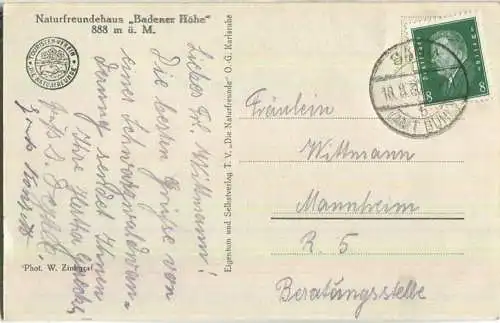 Naturfreundehaus „Badener Höhe"
888 m ü. M.
TOURISTEN-VEREIN
DIE NATURFREUNDE
Liebes Frl. Wittmann!
Die besten Grüße von
einer Schwarzwaldwan-
derung sendet Ihnen
Ihre Hertha
Phot. W. Zinkgraf
Eigentum und Selbstverlag T. V. „Die Naturfreunde" O. G. Karlsruhe
Deutsches Reich
8 8
18.8.
Fräulein
Wittmann
Mannheim
R. 5
Beratungsstelle